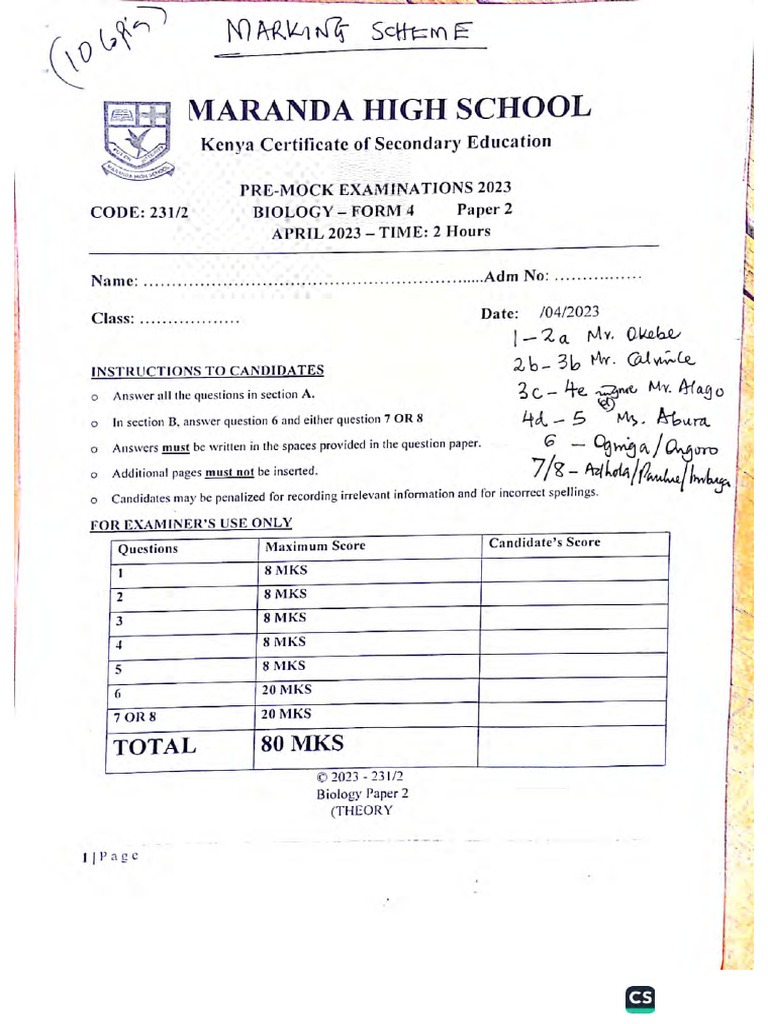 (10 copies)
MARKING SCHEME
MARANDA HIGH SCHOOL
Kenya Certificate of Secondary Education
MARANDA HIGH SCHOOL
PRE-MOCK EXAMINATIONS 2023
CODE: 231/2 BIOLOGY – FORM 4 Paper 2
APRIL 2023 – TIME: 2 Hours
Name: ........................................................ Adm No: ................
Class: ..................
Date: /04/2023
1 – 2a Mr. Okebe
2b – 3b Mr. Calvince
3c – 4c Mr. Alago
4d – 5 Ms. Abura
6 –
7/8 –
INSTRUCTIONS TO CANDIDATES
o Answer all the questions in section A.
o In section B, answer question 6 and either question 7 OR 8
o Answers must be written in the spaces provided in the question paper.
o Additional pages must not be inserted.
o Candidates may be penalized for recording irrelevant information and for incorrect spellings.
FOR EXAMINER'S USE ONLY
Questions Maximum Score Candidate's Score
1 8 MKS
2 8 MKS
3 8 MKS
4 8 MKS
5 8 MKS
6 20 MKS
7 OR 8 20 MKS
TOTAL 80 MKS
© 2023 - 231/2
Biology Paper 2
(THEORY
1 | Page
CS